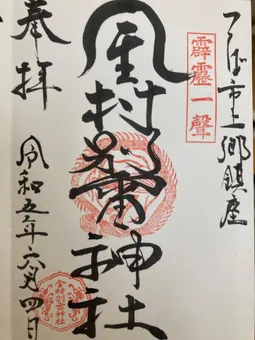 つくば市上郷鎮座
霹靂一聲
金村別雷神社
奉拝
令和五年六月四日
金村別雷神社